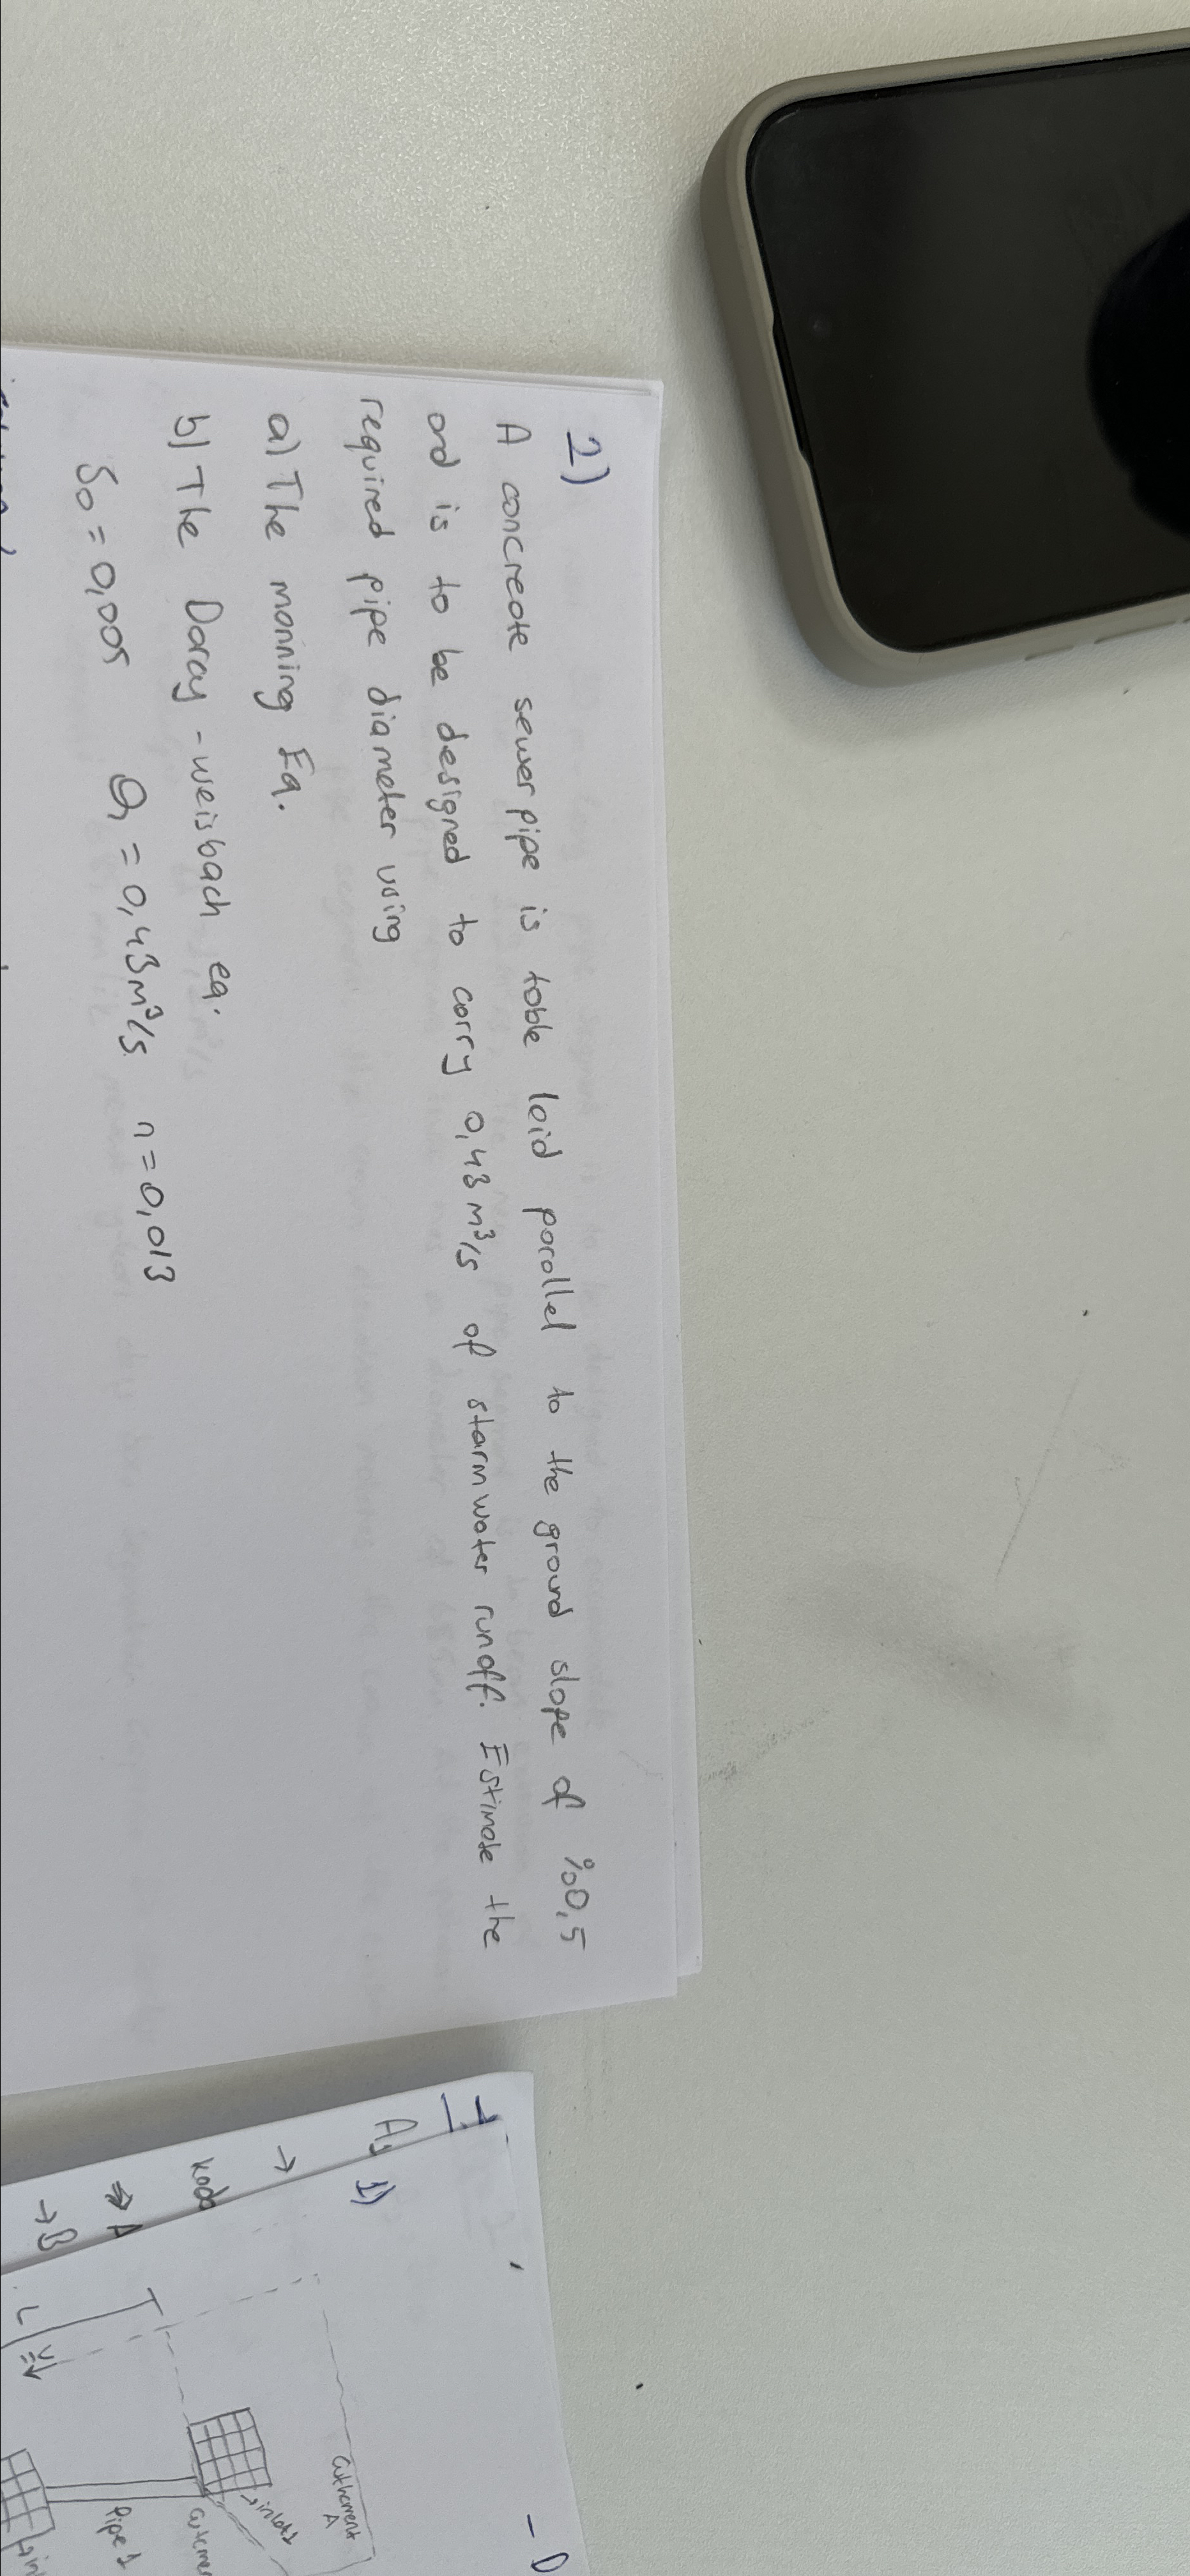 2)
A concreate sewer pipe is tobe laid parallel to the ground slope of %0,5
and is to be designed to carry 0,43 m³/s of starmwater runoff. Estimate the
required pipe diameter using
a) The manning Eq.
b) The Darcy-weisbach eq.
So = 0,005 Q = 0,43 m³/s n = 0,013
1)
→
→ B
catchment
A
→ inlet 1
Pipe 1
- D